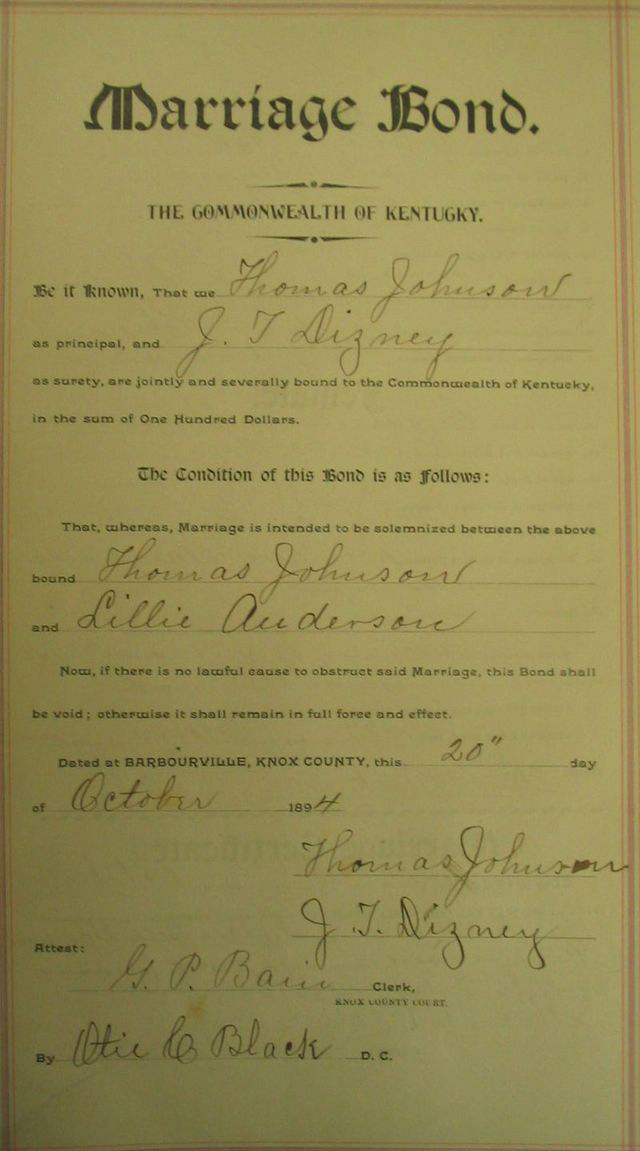 Marriage Bond.
THE COMMONWEALTH OF KENTUCKY.
Be it Known, That we Thomas Johnson
as principal, and J. T Dizney
as surety, are jointly and severally bound to the Commonwealth of Kentucky,
in the sum of One Hundred Dollars.
The Condition of this Bond is as Follows:
That, whereas, Marriage is intended to be solemnized between the above
bound Thomas Johnson
and Lillie Anderson
Now, if there is no lawful cause to obstruct said Marriage, this Bond shall
be void; otherwise it shall remain in full force and effect.
Dated at BARBOURVILLE, KNOX COUNTY, this 20" day
of October 1894
Thomas Johnson
J. T. Dizney
Attest:
G. P. Bain Clerk,
KNOX COUNTY COURT.
By Otie C Black D. C.